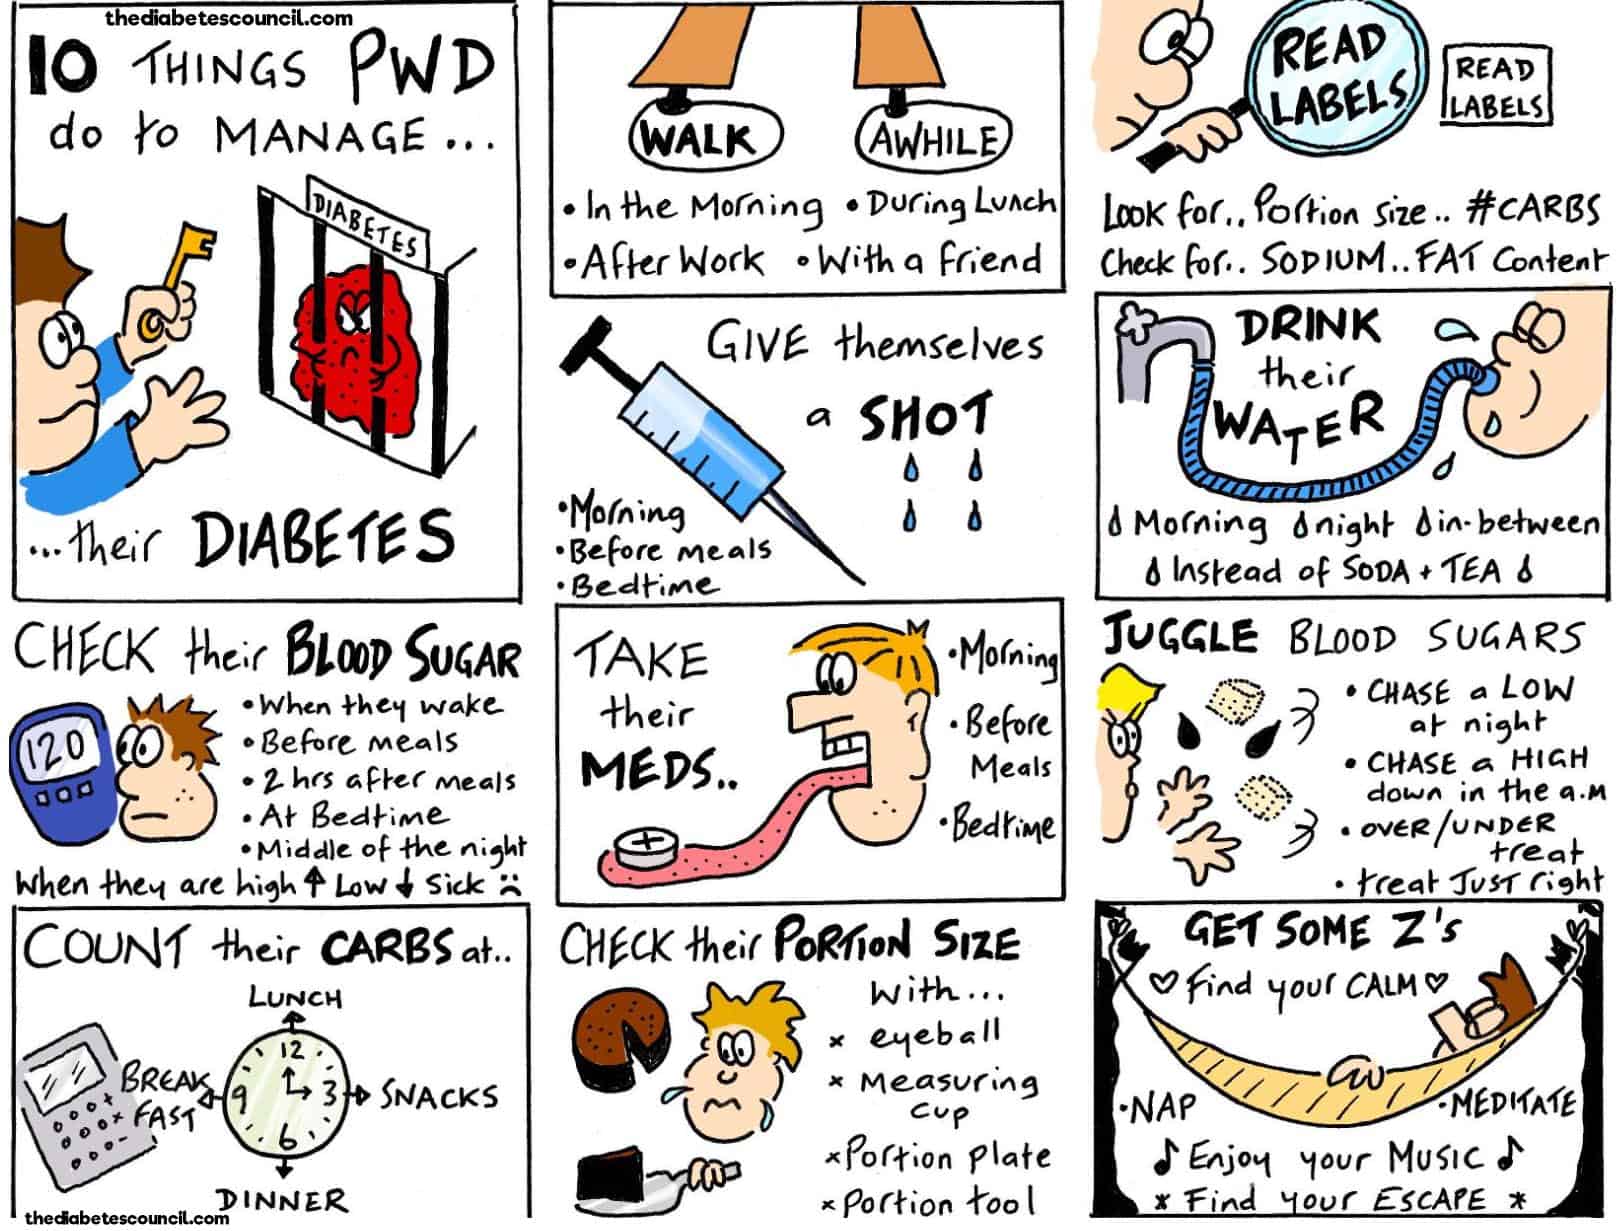 thediabetescouncil.com
10 THINGS PWD
do to MANAGE...
DIABETES
...their DIABETES
CHECK their BLOOD SUGAR
120
• When they wake
• Before meals
• 2 hrs after meals
• At Bedtime
• Middle of the night
When they are high ↑ Low ↓ Sick ☹
COUNT their CARBS at..
LUNCH
BREAK
FAST
12
9
3
6
SNACKS
DINNER
thediabetescouncil.com
WALK AWHILE
• In the Morning • During Lunch
• After Work • With a friend
GIVE themselves
a SHOT
• Morning
• Before meals
• Bedtime
TAKE
their
MEDS..
• Morning
• Before
Meals
• Bedtime
CHECK their PORTION SIZE
With...
x eyeball
x Measuring
cup
x Portion plate
x Portion tool
READ
LABELS
READ
LABELS
Look for.. Portion size.. #CARBS
Check for.. SODIUM.. FAT Content
DRINK
their
WATER
Morning night in-between
Instead of SODA + TEA
JUGGLE BLOOD SUGARS
• CHASE a LOW
at night
• CHASE a HIGH
down in the a.m
• OVER/UNDER
treat
• treat JUST right
GET SOME Z's
♡ Find your CALM ♡
• NAP
• MEDITATE
♪ Enjoy your MUSIC ♪
* Find your ESCAPE *